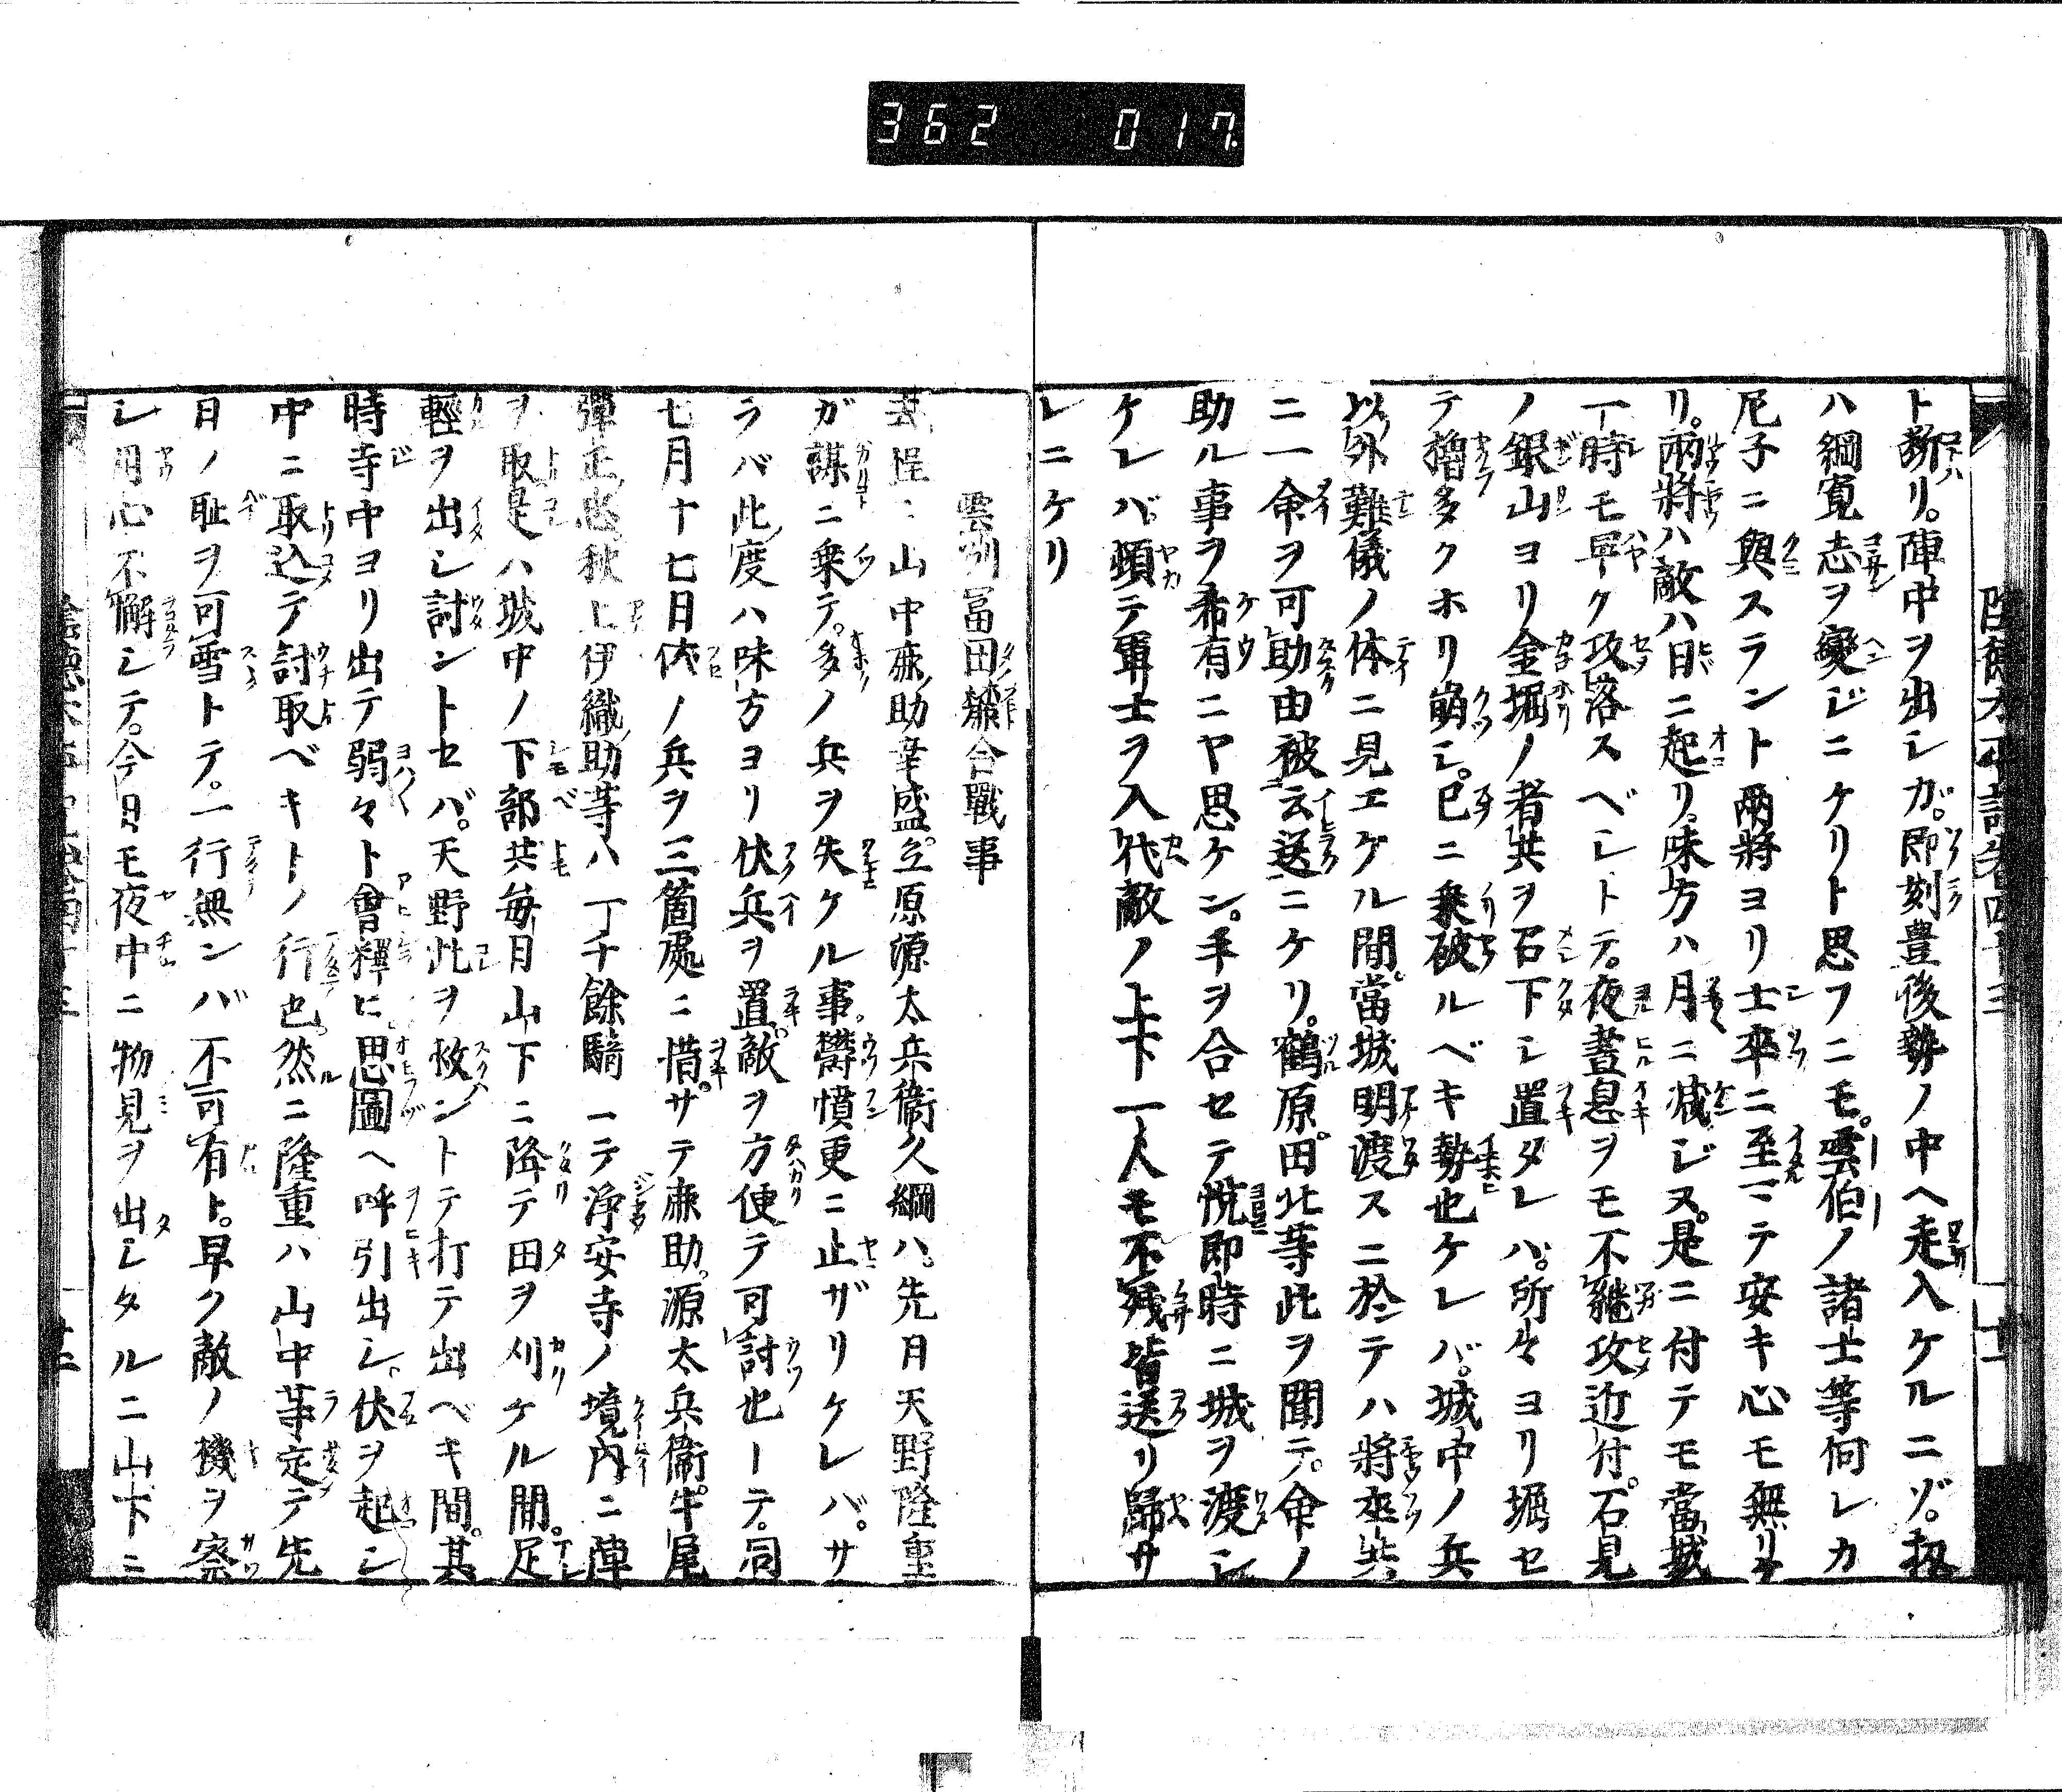 362 017
ト斷リ。陣中ヲ出シカバ。即刻豊後勢ノ中ヘ走入ケルニゾ。扨
ハ綱寛志ヲ變ジニケリト思フニモ。雲伯ノ諸士等何レカ
尼子ニ與スラント兩將ヨリ士卒ニ至マテ安キ心モ無リケ
リ。兩將ハ敵ハ日ニ起リ。味方ハ月ニ減ジヌ。是ニ付テモ當城
一時モ早ク攻落スベシトテ。夜晝息ヲモ不繼攻近付。石見
ノ銀山ヨリ金堀ノ者共ヲ石下シ置タレハ。所々ヨリ堀セ
テ櫓多クホリ崩シ。已ニ乗破ルベキ勢也ケレバ。城中ノ兵
以外難儀ノ体ニ見エケル間。當城明渡スニ於テハ將卒共
ニ一命ヲ可助由被云送ニケリ。鶴原。田北等此ヲ聞テ。命ノ
助ル事ヲ希有ニヤ思ケン。手ヲ合セテ悦即時ニ城ヲ渡シ
ケレバ。頓テ軍士ヲ入代敵ノ上下一人モ不殘皆送リ歸サ
レニケリ
雲州冨田麓合戰事
去程ニ山中鹿ノ助幸盛。立原源太兵衞久綱ハ。先月天野隆重
ガ謀ニ乗テ。多ノ兵ヲ失ケル事。欝憤更ニ止ザリケレバ。サ
ラバ此度ハ味方ヨリ伏兵ヲ置。敵ヲ方便テ可討也トテ。同
七月十七日伏ノ兵ヲ三箇處ニ措。サテ鹿助。源太兵衞。牛尾
彈正忠秋上伊織助等ハ一千餘騎ニテ淨安寺ノ境内ニ陣
ヲ取。是ハ城中ノ下部共毎日山下ニ降テ田ヲ刈ケル間。足
輕ヲ出シ討ントセバ。天野此ヲ救ントテ打テ出ベキ間。其
時寺中ヨリ出テ弱々ト會釋ヒ。思圖ヘ呼引出シ。伏ヲ起シ
中ニ取込テ討取ベキトノ行也。然ニ隆重ハ山中等定テ先
日ノ耻ヲ可雪トテ。一行無ンバ不可有ト。早ク敵ノ機ヲ察
シ用心不懈シテ。今日モ夜中ニ物見ヲ出シタルニ山下ニ